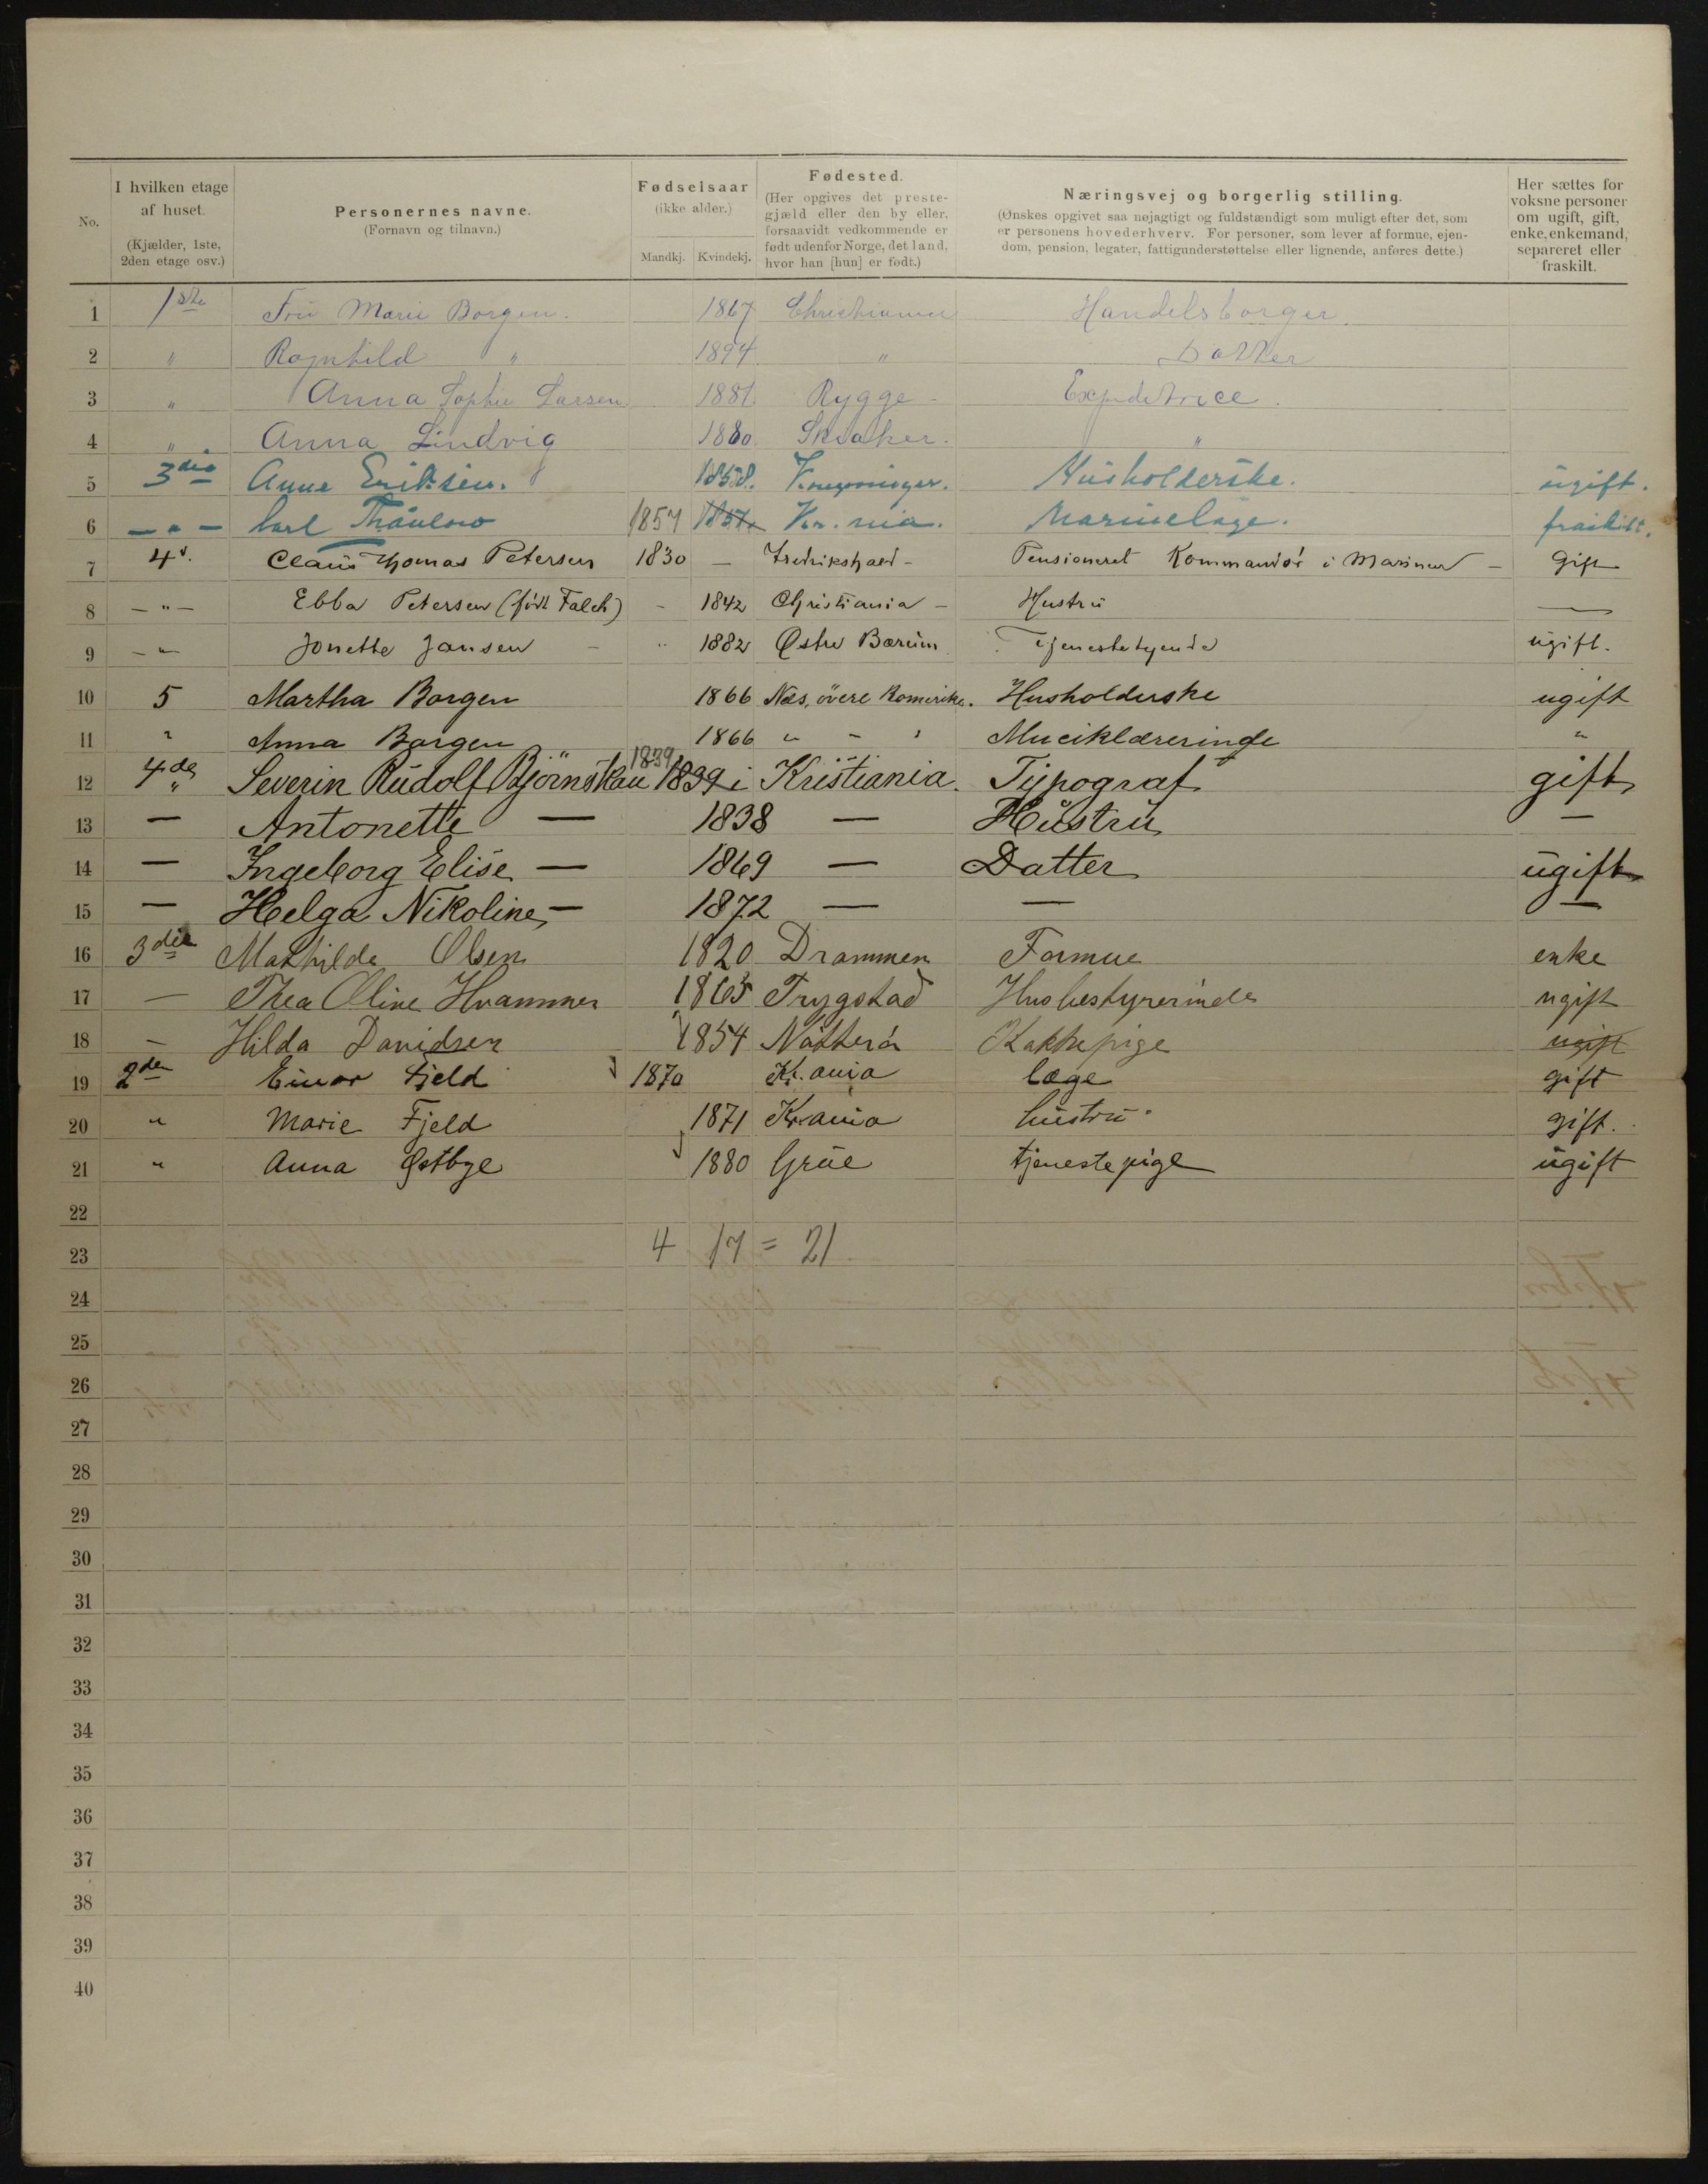 No. I hvilken etage af huset. (Kjælder, 1ste, 2den etage osv.) Personernes navne. (Fornavn og tilnavn.) Fødselsaar (ikke alder.) Mandkj. Kvindekj. Fødested. (Her opgives det prestegjæld eller den by eller, forsaavidt vedkommende er født udenfor Norge, det land, hvor han [hun] er født.) Næringsvej og borgerlig stilling. (Ønskes opgivet saa nøjagtigt og fuldstændigt som muligt efter det, som er personens hovederhverv. For personer, som lever af formue, ejendom, pension, legater, fattigunderstøttelse eller lignende, anføres dette.) Her sættes for voksne personer om ugift, gift, enke, enkemand, separeret eller fraskilt.
1 1ste Fru Marie Borgen. 1867 Christiania Handelsborger.
2 " Ragnhild " 1894 " Datter
3 " Anna Sophie Larsen 1881. Rygge - Expeditrice.
4 " Anna Lindvig 1880. "
5 3die Anne Eriksen. 1858. Husholderske. ugift.
6 - " - Carl Thaulow 1857 1857. Kr.nia. Marinelæge. fraskilt.
7 4d. Claus Thomas Petersen 1830 - Fredrikshald - Pensioneret Kommandør i Marinen - Gift
8 - " - Ebba Petersen (født Falch) - 1842 Christiania - Hustru —
9 - " - Jonette Jansen - " 1882 Østre Bærum Tjenestetyende ugift.
10 5 Martha Borgen 1866 Næs, övre Romerike. Husholderske ugift
11 " Anna Borgen 1866 " - " Muciklærerinde "
12 4de " Severin Rudolf Björnskau 1839 1839 i Kristiania. Typograf gift
13 — Antonette — 1838 — Hustru —
14 — Ingeborg Elise — 1869 — Datter ugift
15 — Helga Nikoline — 1872 — — —
16 3die Mathilde Olsen 1820 Drammen Formue enke
17 — Thea Oline Hvammer 1865 Trygstad Husbestyrerinde ugift
18 — Hilda Davidsen 1854 Nøtterø Kokkepige ugift
19 2den Einar Fjeld 1870 Kr.ania læge gift
20 " Marie Fjeld 1871 Kr.ania hustru. gift.
21 " Anna Østbye 1880 Grue tjenestepige ugift
22
23 4 17 = 21
24
25
26
27
28
29
30
31
32
33
34
35
36
37
38
39
40